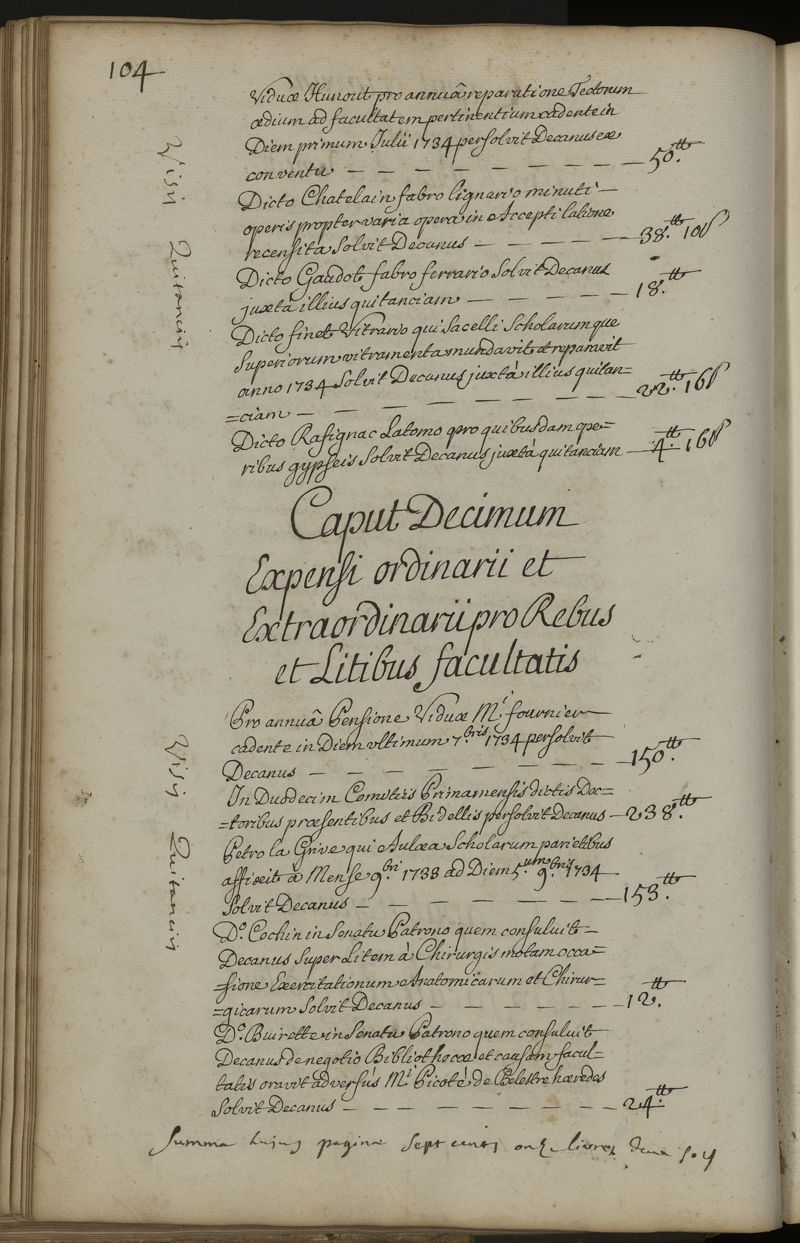 104
Viduæ Hunout pro annuâ reparatione Tectorum
ædium ad facultatem pertinentium cadente in
Diem primum Julii 1734 persolvit Decanus ex
conventu — — — — — — — — 50.tt
Visis Quitanciis
Dicto Chatelain fabro lignario minuti
operis propter varia opera in Acceptilatione
recensita Solvit Decanus — — — — — 38.tt 10ſ
Dicto Gaudot fabro ferrario Solvit Decanus
juxta illius quitanciam — — — — — 18.tt
Dicto finet Vitrario qui Sacelli Scholarumque
Superiorum vitramenta mundavit et reparavit
anno 1734 Solvit Decanus juxtà illius quitan=
=ciam — — — — — — — — — 22.tt 16ſ
Dicto Rasignac Latomo pro quibusdam ope=
ribus gypseis Solvit Decanus juxtà quitanciam — 4.tt 16ſ
Caput Decimum
Expensi ordinarii et
Extraordinarii pro Rebus
et Litibus facultatis
Pro annuâ Pensione Viduæ Mi fournier
cadente in Diem ultimum 7bris 1734 persolvit
Decanus — — — — — — — — 150.tt
Visis Quitanciis
In Duodecim Comitiis Primamensis dictis Doc=
=toribus præsentibus et Bidellis persolvit Decanus — 238.tt
Petro la Grive qui Aulæa Scholarum parietibus
affixit à Mense 9bri 1733 ad Diem 5um 9bris 1734
Solvit Decanus — — — — — — — 153.tt
Do. Cochin in Senatu Patrono quem consuluit
Decanus Super Litem à Chirurgis motam occa=
=sione Exercitationum Anatomicarum et Chirur=
=gicarum Solvit Decanus — — — — — — 12.tt
Do. Buirette in Senatu Patrono quem consuluit
Decanus de negotio Bibliothecæ et causam facul=
tatis oravit adversùs Mi Picoté de Belestre hæredes
Solvit Decanus — — — — — — — — 24.tt
Summa hujus paginæ Sept cents onze livres deux sols